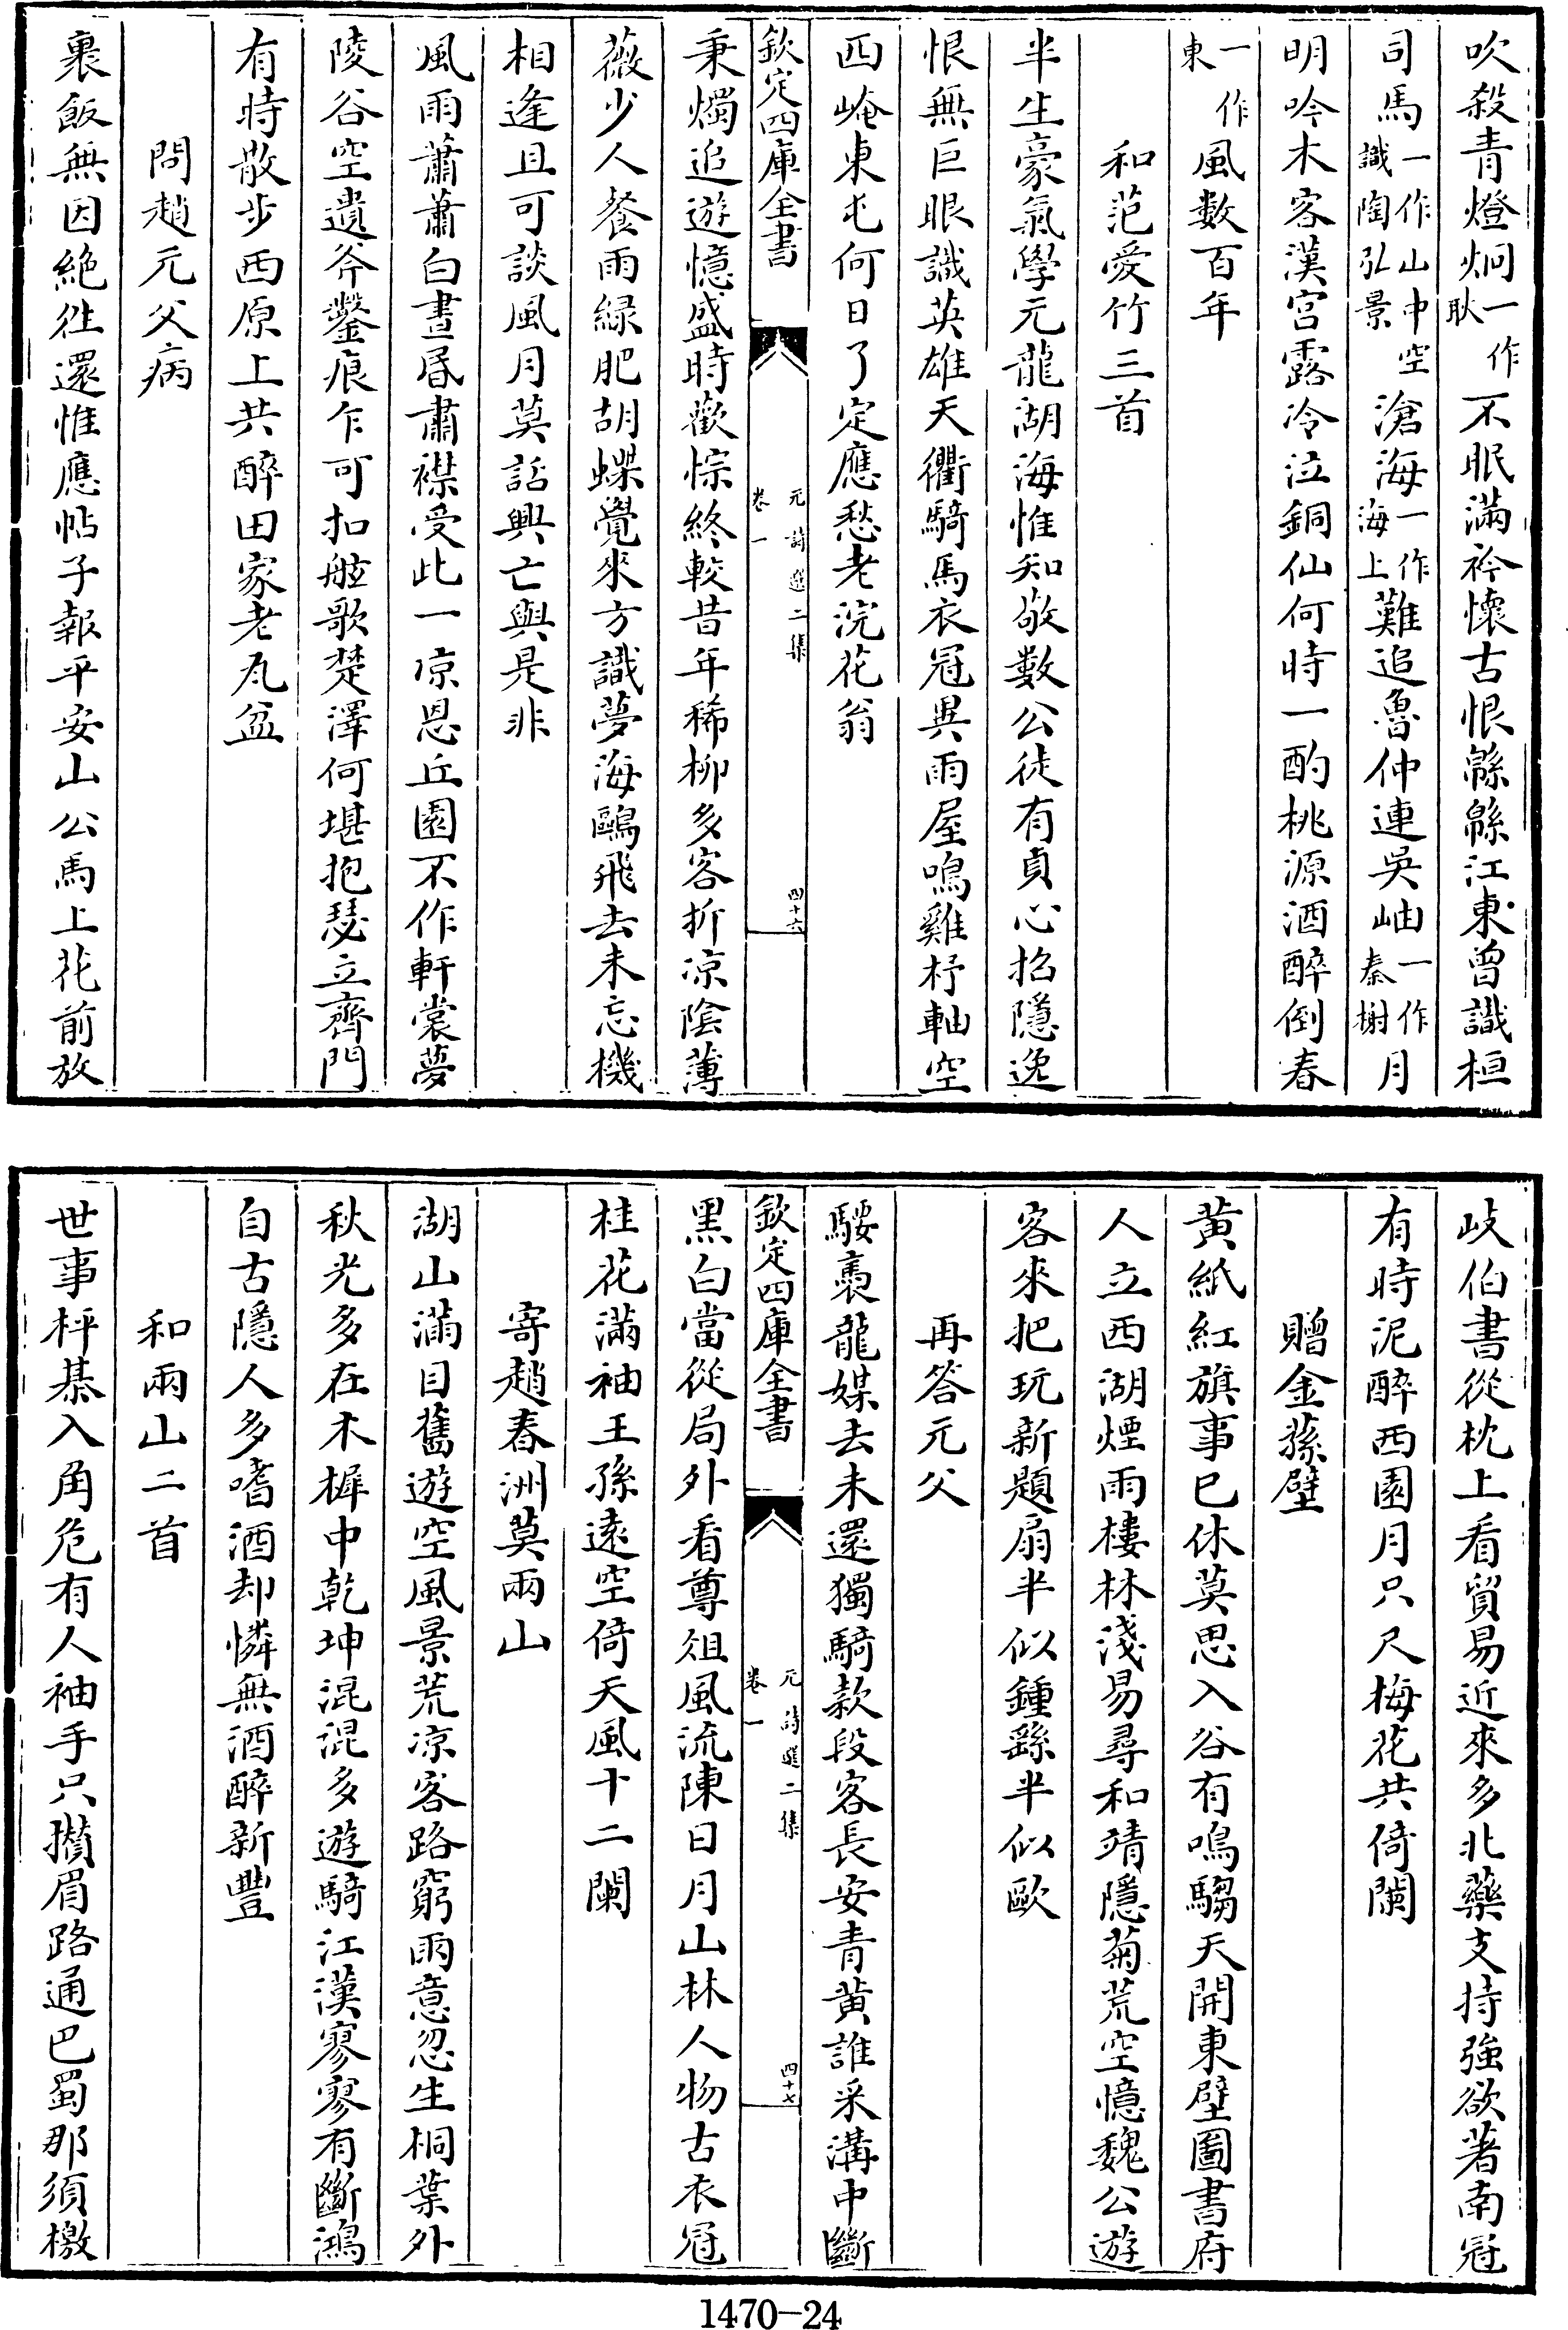 吹殺青燈炯一作耿不眠滿衿懷古恨緜緜江東曾識桓
司馬一作山中空識陶弘景滄海一作海上難追魯仲連吳岫一作秦樹月
明吟木客漢宮露冷泣銅仙何時一酌桃源酒醉倒春
一作東風數百年
和范愛竹三首
半生豪氣學元龍湖海惟知敬數公徒有貞心招隱逸
恨無巨眼識英雄天衢騎馬衣冠異雨屋鳴雞杼軸空
西崦東屯何日了定應愁老浣花翁
欽定四庫全書
元詩選二集
卷一
四十六
秉燭追遊憶盛時歡悰終較昔年稀柳多客折凉陰薄
薇少人餐雨綠肥胡蝶覺來方識夢海鷗飛去未忘機
相逢且可談風月莫話興亡與是非
風雨蕭蕭白晝昏肅襟受此一凉恩丘園不作軒裳夢
陵谷空遺斧鑿痕乍可扣舷歌楚澤何堪抱瑟立齊門
有時散步西原上共醉田家老瓦盆
問趙元父病
裹飯無因絶往還惟應帖子報平安山公馬上花前放
岐伯書從枕上看貿易近來多北藥支持強欲著南冠
有時泥醉西園月只尺梅花共倚闌
贈金蓀壁
黃紙紅旗事已休莫思入谷有鳴騶天開東壁圖書府
人立西湖煙雨樓林淺易尋和靖隱菊荒空憶魏公遊
客來把玩新題扇半似鍾繇半似歐
再答元父
騕褭龍媒去未還獨騎款段客長安青黃誰采溝中斷
欽定四庫全書
元詩選二集
卷一
四十七
黑白當從局外看尊俎風流陳日月山林人物古衣冠
桂花滿袖王孫遠空倚天風十二闌
寄趙春洲莫兩山
湖山滿目舊遊空風景荒凉客路窮雨意忽生桐葉外
秋光多在木樨中乾坤混混多遊騎江漢寥寥有斷鴻
自古隱人多嗜酒却憐無酒醉新豐
和兩山二首
世事枰棊入角危有人袖手只攅眉路通巴蜀那須檄
1470-24